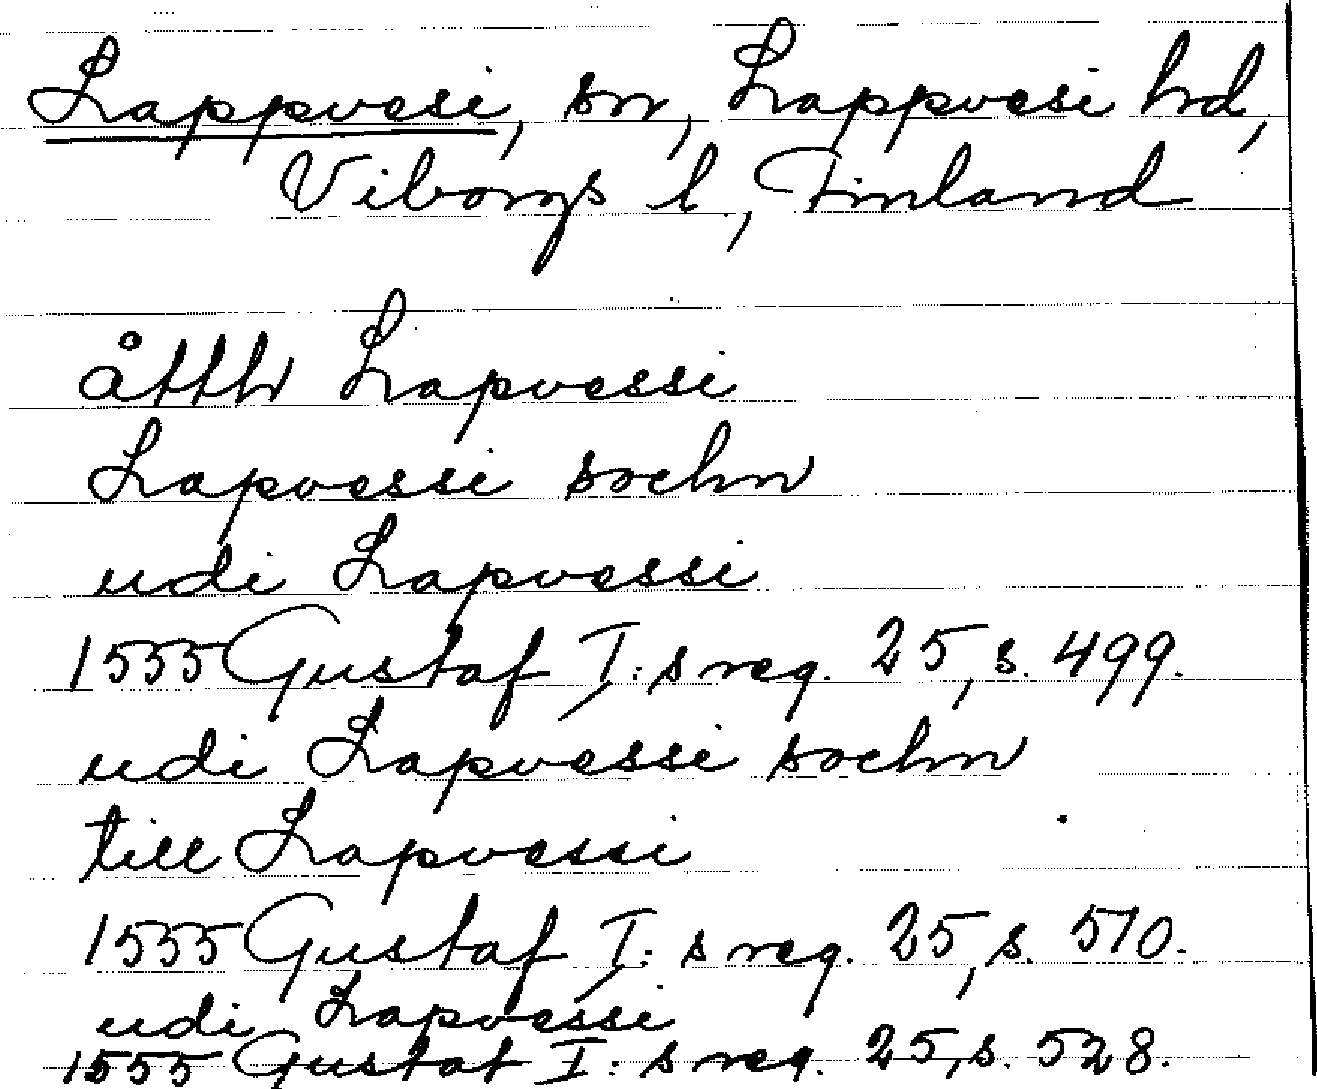 Lappvesi, sn, Lappvesi hd,
Viborgs l, Finland
åtth Lapvessi
Lapvessi sochn
udi Lapvessi
1555 Gustaf I:s reg. 25, s. 499.
udi Lapvessi sochn
till Lapvessi
1555 Gustaf I:s reg. 25, s. 510.
udi Lapvessi
1555 Gustaf I:s reg. 25, s. 528.